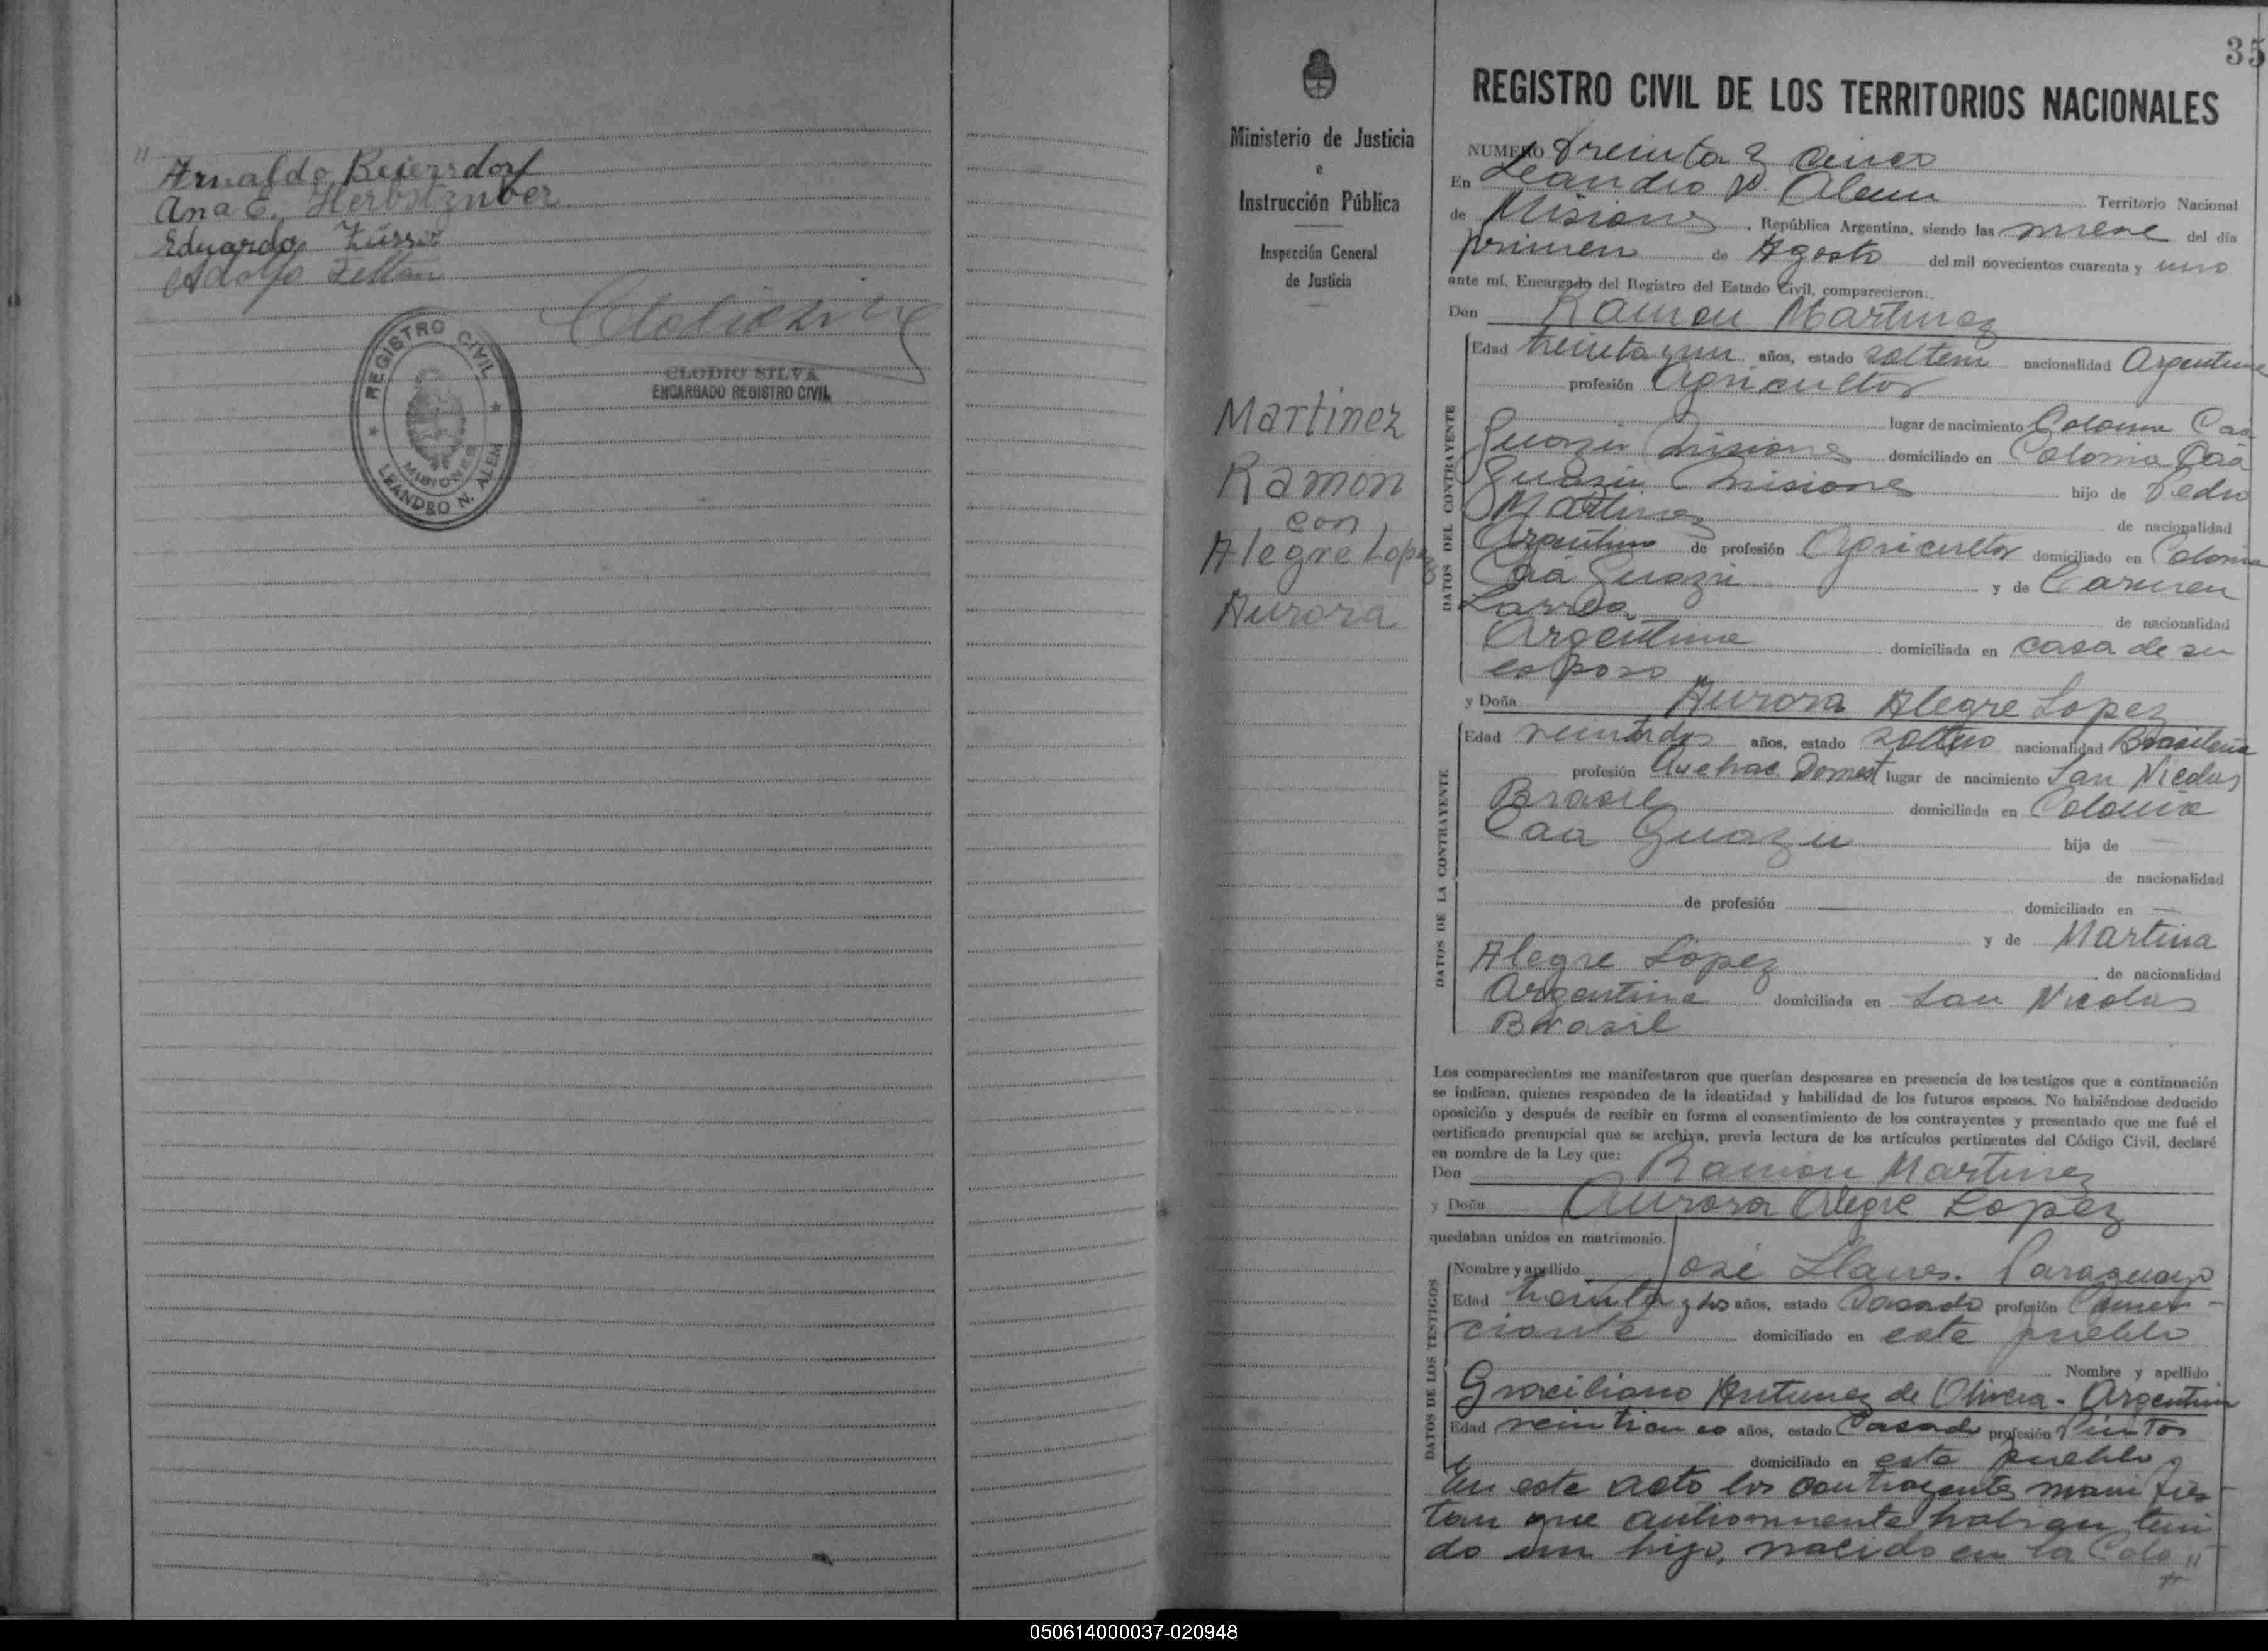 "
Arnaldo Beiersdorf
Ana E.
Eduardo
Adolfo
REGISTRO CIVIL
MISIONES
LEANDRO N. ALEM
CLODIO SILVA
ENCARGADO REGISTRO CIVIL
35
Ministerio de Justicia
e
Instrucción Pública
Inspección General
de Justicia
Martinez
Ramon
con
Alegre Lopez
Aurora
REGISTRO CIVIL DE LOS TERRITORIOS NACIONALES
NUMERO Treinta y cinco
En Leandro N. Alem Territorio Nacional
de Misiones, República Argentina, siendo las nueve del día
primero de Agosto del mil novecientos cuarenta y uno
ante mí, Encargado del Registro del Estado Civil, comparecieron:
Don Ramon Martinez
DATOS DEL CONTRAYENTE
Edad treinta y un años, estado soltero nacionalidad Argentino
profesión Agricultor
lugar de nacimiento Colonia Caa
Guazu Misiones domiciliado en Colonia Caa
Guazu Misiones hijo de Pedro
Martinez de nacionalidad
Argentino de profesión Agricultor domiciliado en Colonia
Caa Guazu y de Carmen
Larrea de nacionalidad
Argentina domiciliada en casa de su
esposo
y Doña Aurora Alegre Lopez
DATOS DE LA CONTRAYENTE
Edad veintidos años, estado soltera nacionalidad Brasileña
profesión Quehac Domest lugar de nacimiento San Nicolas
Brasil domiciliada en Colonia
Caa Guazu hija de —
de nacionalidad
de profesión — domiciliado en —
y de Martina
Alegre Lopez, de nacionalidad
Argentina domiciliada en San Nicolas
Brasil
Los comparecientes me manifestaron que querían desposarse en presencia de los testigos que a continuación
se indican, quienes responden de la identidad y habilidad de los futuros esposos. No habiéndose deducido
oposición y después de recibir en forma el consentimiento de los contrayentes y presentado que me fué el
certificado prenupcial que se archiva, previa lectura de los artículos pertinentes del Código Civil, declaré
en nombre de la Ley que:
Don Ramon Martinez
y Doña Aurora Alegre Lopez
quedaban unidos en matrimonio.
DATOS DE LOS TESTIGOS
Nombre y apellido José Llanes. Paraguayo
Edad treinta y dos años, estado Casado profesión Comer-
ciante domiciliado en este pueblo
Nombre y apellido
Graciliano Antunez de Olivera - Argentino
Edad veinticinco años, estado Casado profesión Pintor
domiciliado en este pueblo
En este acto los contrayentes manifies-
tan que anteriormente habian teni-
do un hijo, nacido en la Colo "
050614000037-020948